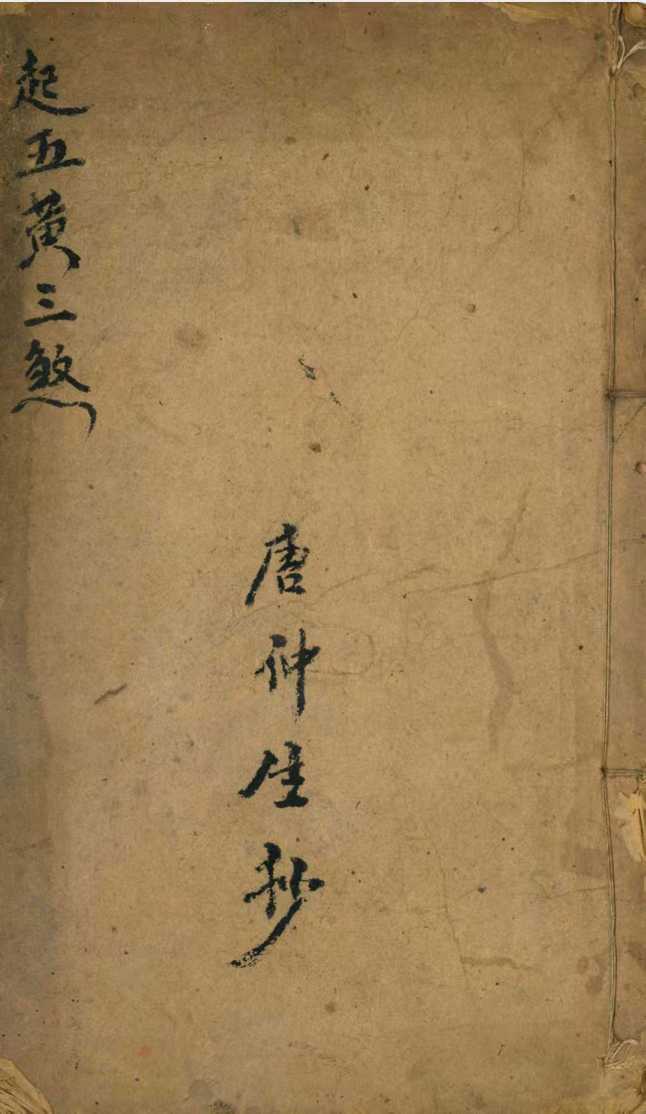 起五黄三煞
唐仲生抄